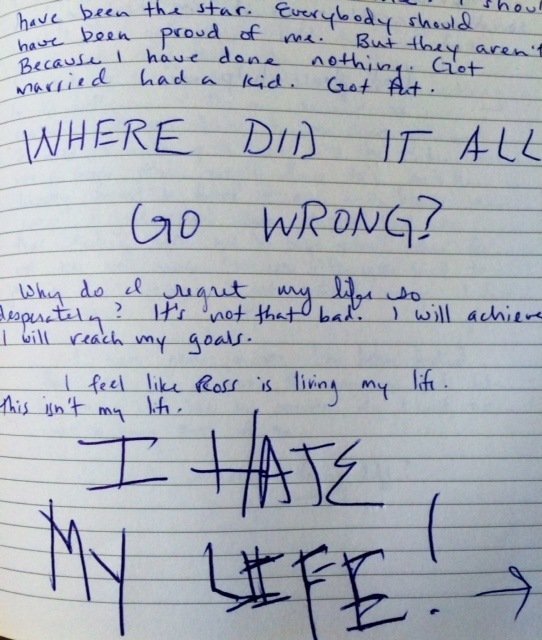 I shoul
have been the star. Everybody should
have been proud of me. But they aren't
Because I have done nothing. Got
married had a kid. Got fat.
WHERE DID IT ALL
GO WRONG?
Why do I regret my life so
desperately? It's not that bad. I will achieve
I will reach my goals.
I feel like Ross is living my life.
This isn't my life.
I HATE
MY LIFE!
→